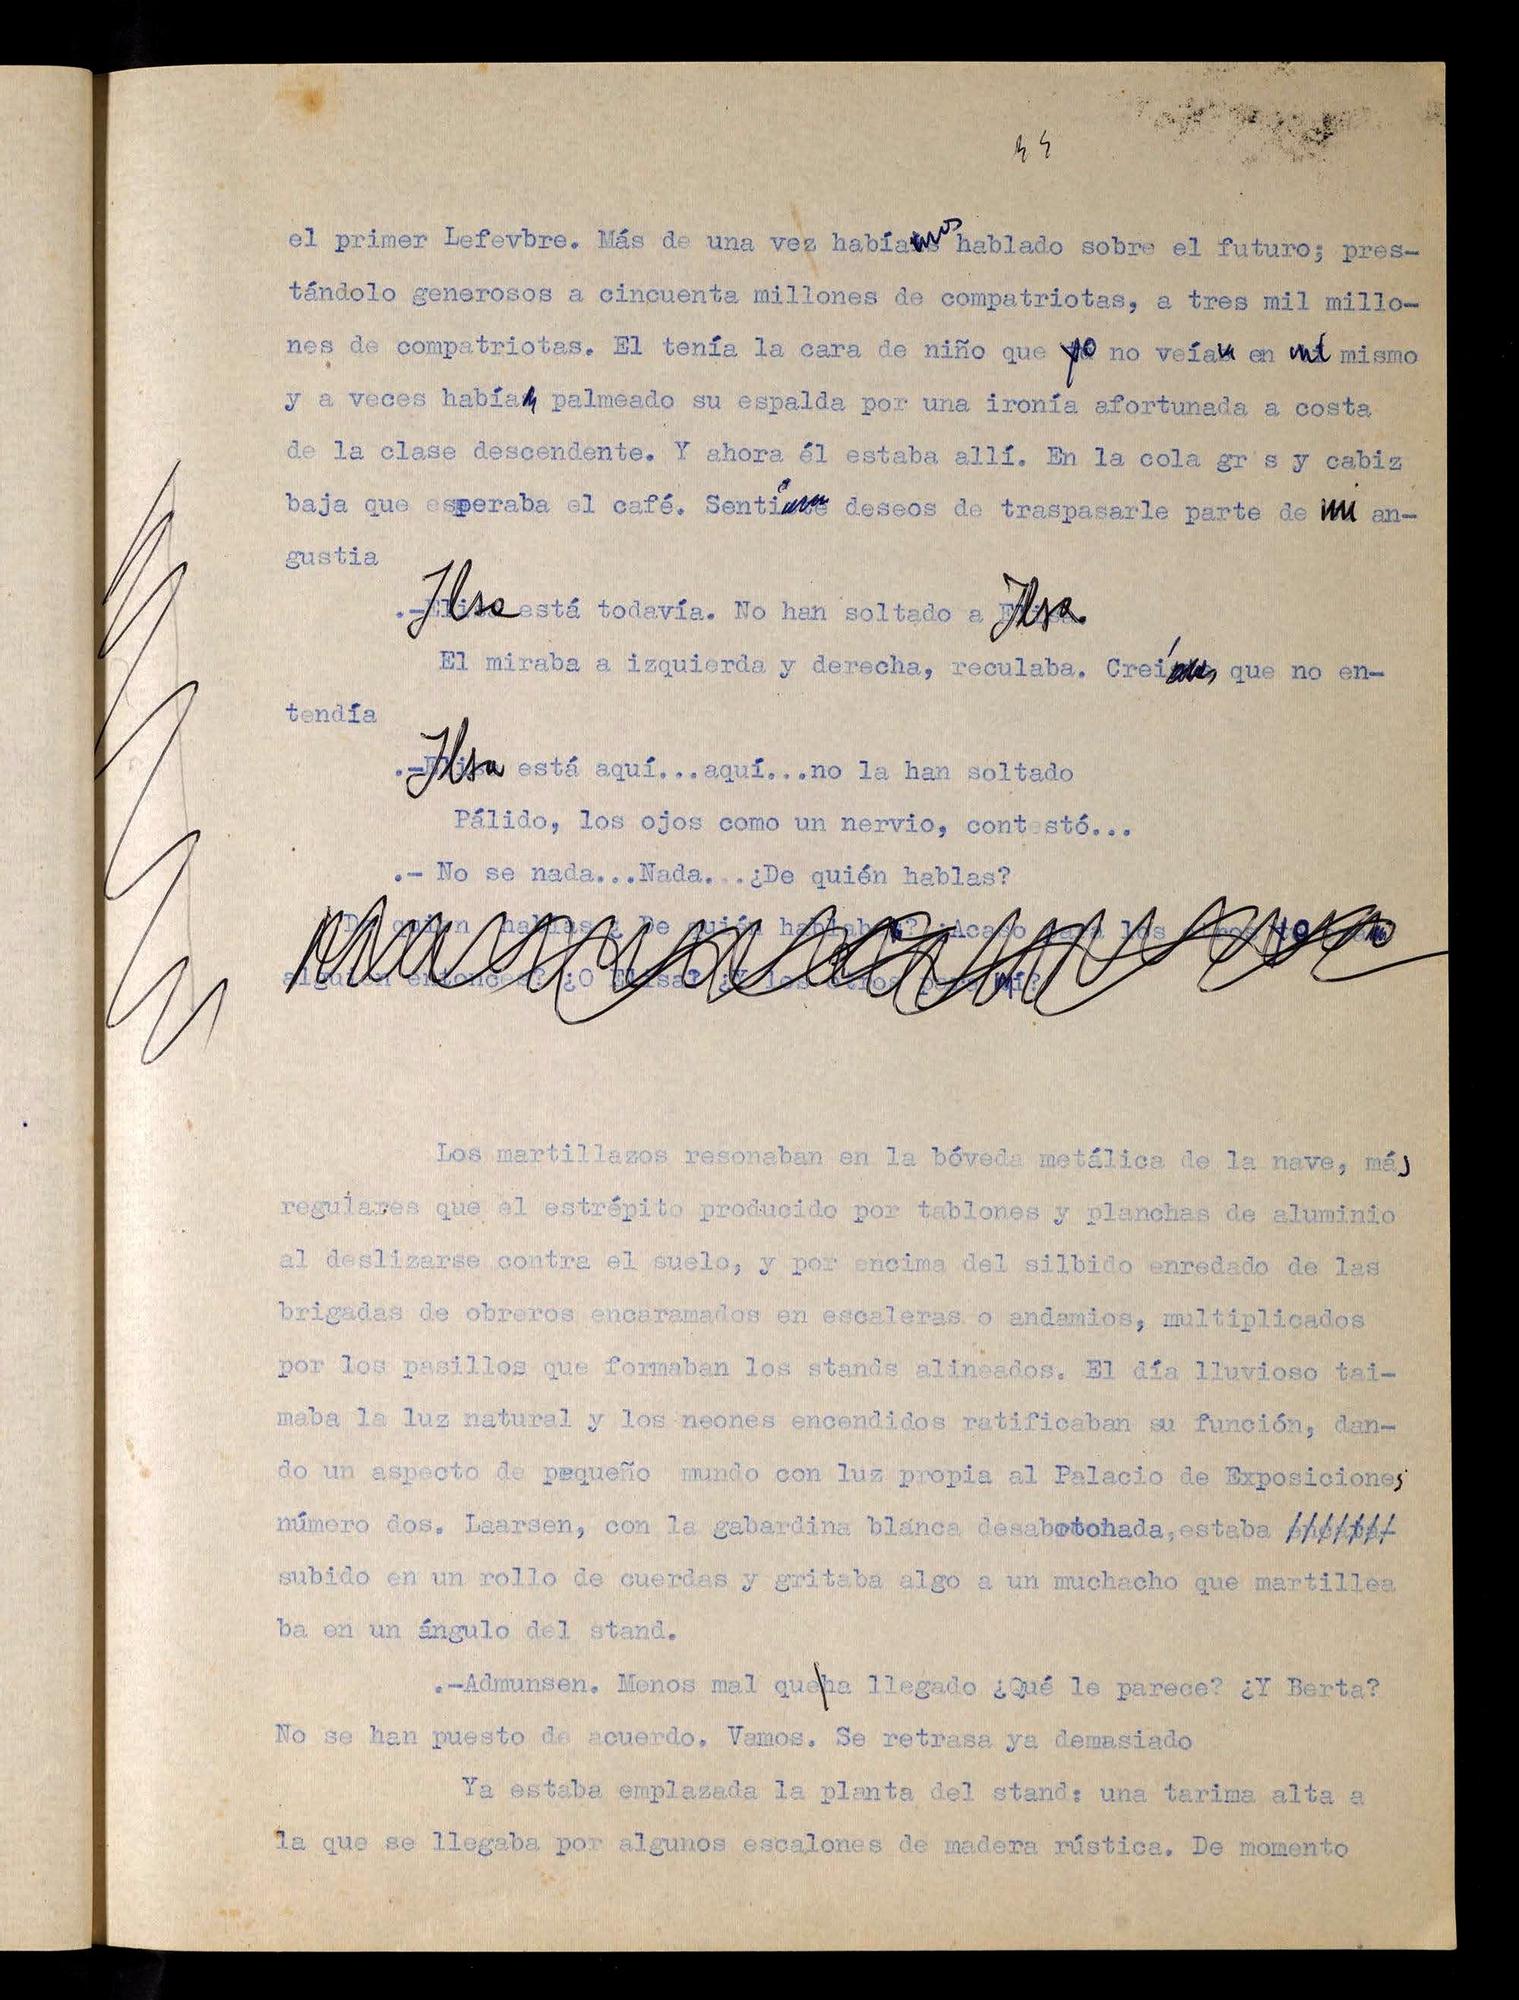 el primer Lefevbre. Más de una vez habíamos hablado sobre el futuro; pres-
tándolo generosos a cincuenta millones de compatriotas, a tres mil millo-
nes de compatriotas. El tenía la cara de niño que yo no veía en mí mismo
y a veces había palmeado su espalda por una ironía afortunada a costa
de la clase descendente. Y ahora él estaba allí. En la cola gr s y cabiz
baja que esperaba el café. Sentí deseos de traspasarle parte de mi an-
gustia
.-Ilsa está todavía. No han soltado a Ilsa.
El miraba a izquierda y derecha, reculaba. Creí que no en-
tendía
.-Ilsa está aquí...aquí...no la han soltado
Pálido, los ojos como un nervio, contestó...
.- No se nada...Nada...¿De quién hablas?
De quien hablas ¿ De quién hablaba ? ¿Acaso para los otros yo
alguien entonces? ¿O Elisa? ¿Y los otros para mí?
Los martillazos resonaban en la bóveda metálica de la nave, más
regulares que el estrépito producido por tablones y planchas de aluminio
al deslizarse contra el suelo, y por encima del silbido enredado de las
brigadas de obreros encaramados en escaleras o andamios, multiplicados
por los pasillos que formaban los stands alineados. El día lluvioso tai-
maba la luz natural y los neones encendidos ratificaban su función, dan-
do un aspecto de pequeño mundo con luz propia al Palacio de Exposiciones
número dos. Laarsen, con la gabardina blanca desabotohada,estaba
subido en un rollo de cuerdas y gritaba algo a un muchacho que martillea
ba en un ángulo del stand.
.-Admunsen. Menos mal que ha llegado ¿Qué le parece? ¿Y Berta?
No se han puesto de acuerdo. Vamos. Se retrasa ya demasiado
Ya estaba emplazada la planta del stand: una tarima alta a
la que se llegaba por algunos escalones de madera rústica. De momento